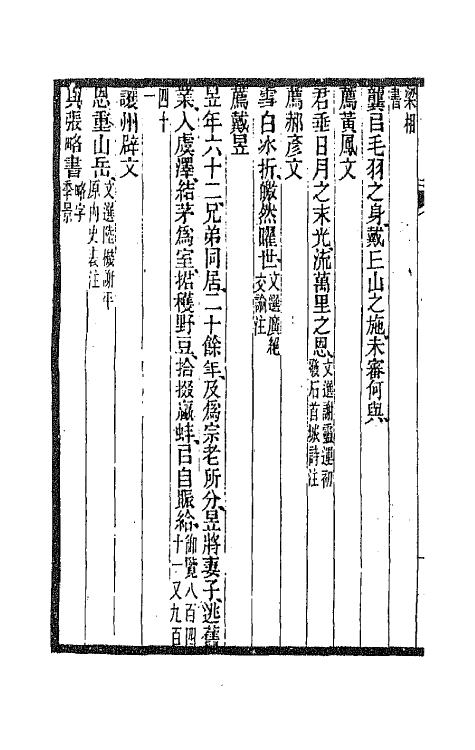 梁相
書
龔㠯毛羽之身戴丘山之施未審何與
薦黃鳳文
君垂日月之末光流萬里之恩文選謝靈運初
發石首城詩注
薦郝彥文
雪白冰折皦然曜世文選廣絕
交論注
薦戴昱
昱年六十二兄弟同居二十餘年及爲宗老所分昱將妻子逃舊
業入虞澤結茅爲室捃穫野豆拾掇蠃蚌㠯自賑給御覽八百四
十一又九百
四十
一
讓州辟文
恩重山岳文選陸機謝平
原內史表注
與張略書略字
季景